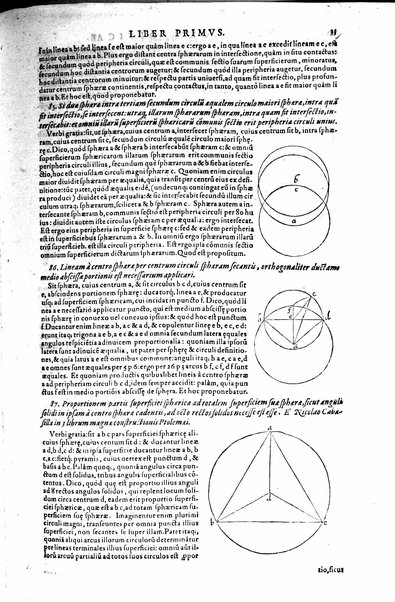 LIBER PRIMVS. 33
sein linea a b: sed linea f e est maior quàm linea e c: ergo a e, in qua linea a c excedit lineam e c, est
maior quàm linea a b. Plus ergo distant centra sphærarum in contactu, quàm in situ contactus:
& secundum quod peripheria circuli, quæ est communis sectio suarum superficierum, minoratur,
secundum hoc distantia centrorum augetur: & secundum quòd illa peripheria augetur, secundum
hoc distantia centrorum minuitur: & respectu partis uniuersi, ad quam sit intersectio, plus profun-
datur centrum sphæræ continentis, respectu contactus, in tanto, quantò linea a e sit maior quàm li
nea a b. Et hoc est, quod proponebatur.
85. Si duæ sphæræ intra tertiam secundum circulū æqualem circulo maiori sphæræ, intra quā
fit intersectio, se intersecent: utraq; illarum sphærarum sphæram, intra quam fit intersectio, in-
tersecabit: et omniū illarū superficierum sphæricarū cōmunis sectio erit peripheria circuli unius.
Verbi gratia: sit, ut sphæra, cuius centrum a, intersecet sphæram, cuius centrum sit b, intra sphæ-
ram, cuius centrum sit c, secundum circulū æqualē circulo maiori sphæ-
ræ c. Dico, quòd sphæra a & sphæra b intersecabūt sphæram c: & omniū
superficierum sphæricarum illarum sphærarum erit communis sectio
peripheria circuli illius, secundum quē sphærarum a & b fiebat interse-
ctio, hoc est cuiusdam circuli magni sphæræ c. Quoniam enim circulus
maior diuidit sphæram per æqualia, quia transit per centrū eius ex defi-
nitione: tunc patet, quòd æqualis eidē, (undecunq; contingat eū in sphæ
ra produci) diuidet eā per æqualia: & sic intersecabit secundū illum cir
culum utrāq; sphærarum, scilicet a & b sphæram c. Sphæra autem a in-
tersecante sphæram b, communis sectio est peripheria circuli per 80 hu
ius: diuidit autem iste circulus sphæram c per æqualia, ut ostensum est.
Est ergo eius peripheria in superficie sphæræ c: sed & eadem peripheria
est in superficiebus sphærarum a & b. In omniū ergo sphærarum illarū
superficiebus est illa circuli peripheria. Est ergo ipsa cōmunis sectio om
nium superficierum dictarum sphærarum. Et hoc est propositum.
86. Lineam à centro sphæræ per centrum circuli sphæram secantis, orthogonaliter ductam
medio abscissæ portionis est necessarium applicari.
Sit sphæra, cuius centrum a, & sit circulus b c d, cuius centrum sit
e, abscindens portionem sphæræ: ducaturq́; linea a e, & producatur
usq; ad superficiem sphæricam, cui incidat in puncto f. Dico, quòd li
nea a e necessariò applicatur puncto, qui est medium abscissæ portio
nis sphæræ in conuexo uel concauo ipsius: & quòd hoc est punctum
f. Ducantur enim lineæ a b, a c & a d, & copulentur lineæ e b, e c, e d:
erunt itaq; trigona a e b, a e c & a e d omnia secundum latera equales
angulos respiciētia adinuicem proportionalia: quoniam illa ipsorū
latera sunt adinuicē æqualia, ut patet per sphæræ & circuli definitio-
nes, & quia latus a e est omnibus communi: anguli itaq; b a e, c a e, d
a e omnes sunt æquales per 5 p 6: ergo per 26 p 3 arcus b f, c f, d f sunt
æquales. Et quoniam productis quibuslibet lineis à centro sphæræ
ad peripheriam circuli b c d, idem semper accidit: palàm, quia pun-
ctus f est in medio portiōis abscissæ de sphæra. Et hoc proponebatur.
87. Proportionem partis superficiei sphæricæ ad totalem superficiem suæ sphæræ, sicut anguli
solidi in ipsam à centro sphæræ cadentis, ad octo rectos solidos necesse est esse. E Nicolao Caba-
silla in 3 librum magnæ constructionis Ptolemæi.
Verbi gratia: sit a b c pars superficiei sphæricæ ali-
cuius sphæræ, cuius centrum sit d: & ducantur lineæ
a d, b d, c d: & in ipsa superficie ducantur lineæ a b, b
c, a c: fietq́; pyramis, cuius uertex est punctum d, &
basis a b c. Palàm quoq;, quoniā angulus circa pun-
ctum d est solidus, tribus angulis superficialibus cō-
tentus. Dico, quòd quæ est proportio illius anguli
ad 8 rectos angulos solidos, qui replent locum soli-
dum circa centrum d, eadem erit proportio superfi-
ciei sphæricæ, quæ est a b c, ad totam sphæricam su-
perficiem suæ sphæræ. Imaginentur enim plurimi
circuli magni, transeuntes per omnia puncta illius
superficiei, non secantes se super illam. Patet itaq;,
quòd aliqui arcus illorum circulorū determinātur
per lineas terminales illius superficiei: omniū aūt il-
lorū arcuū partialiū ad totos suos circulos est ppor
tio, sicut
b
c
a
c
f
e
a
d
b
a
d
b
c